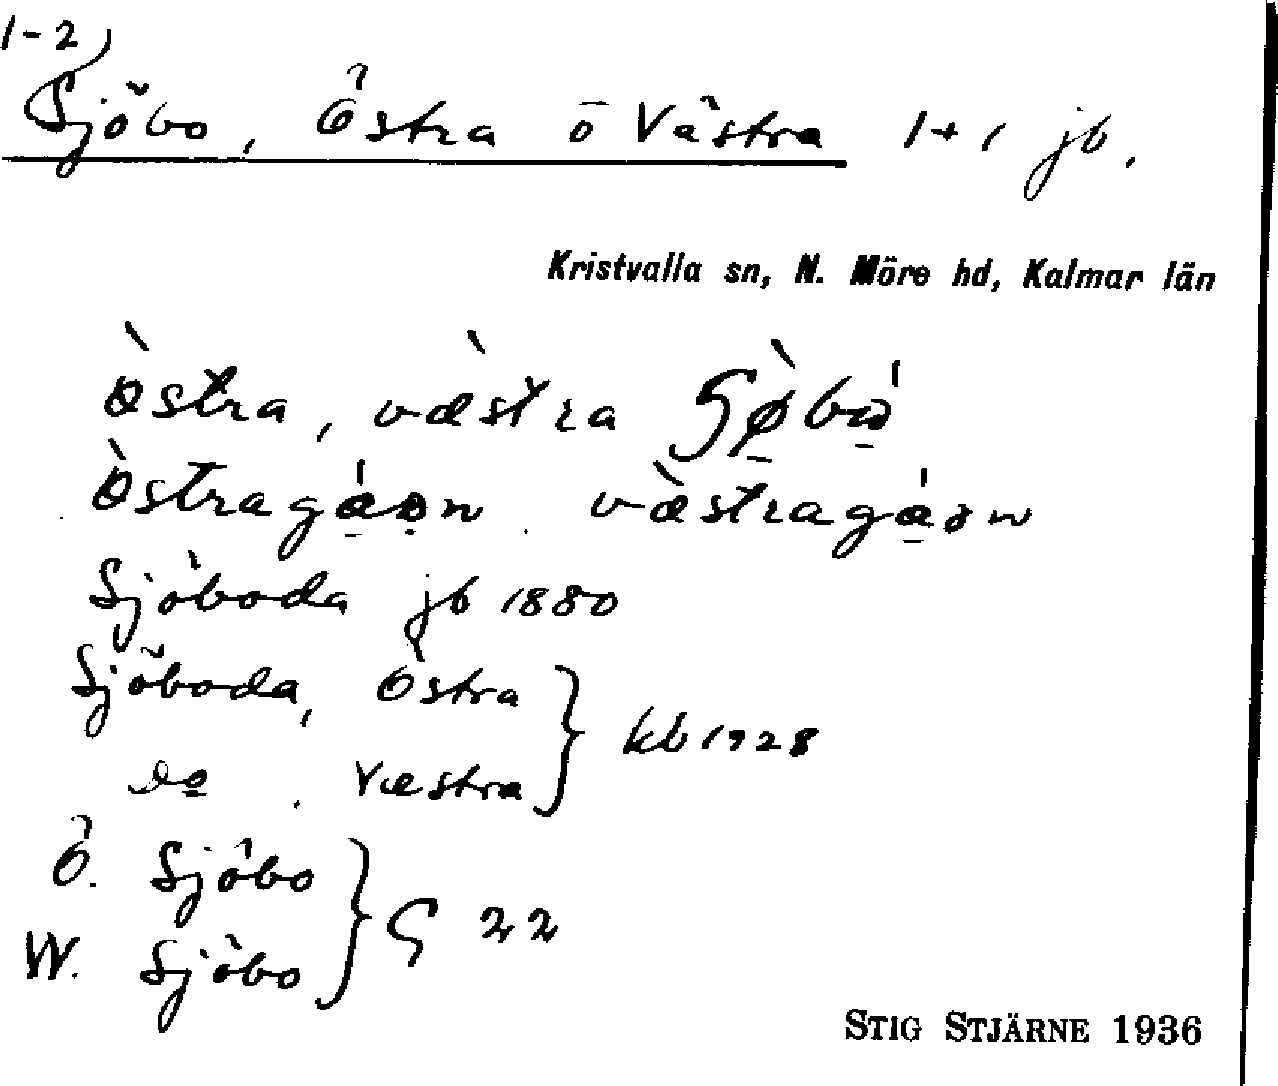 1-2)
Sjöbo, Östra o Västra 1+1 jb.
Kristvalla sn, N. Möre hd, Kalmar län
östra, västra
Sjöboda jb 1880
Sjöboda, Östra
do . Västra } kb 1928
Ö. Sjöbo
W. Sjöbo } G 22
STIG STJÄRNE 1936